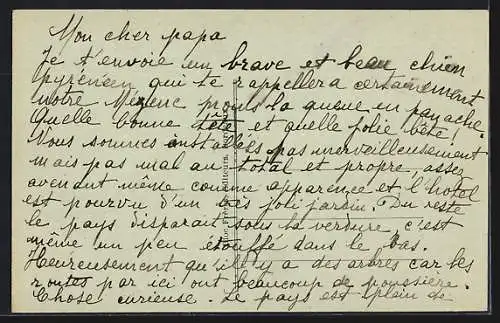 Mon cher papa
Je t'envoie un brave et beau chien
pyrénéen qui te rappellera certainement
notre promis la queue en panache.
Quelle bonne tête et quelle jolie bête!
Nous sommes installés pas merveilleusement
mais pas mal au total et propre, assez
avenant même comme apparence et l'hôtel
est pourvu d'un bas joli jardin. Du reste
le pays disparait sous la verdure, c'est
même un peu étouffé dans le bas.
Heureusement qu'il y a des arbres car les
routes par ici ont beaucoup de poussière.
Chose curieuse. Le pays est plein de